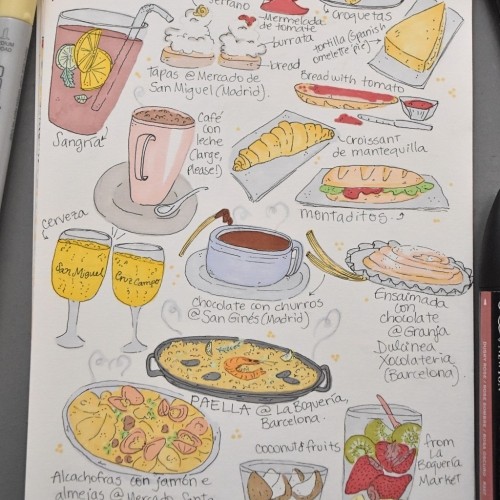 Serrano
Mermelada
de tomate
burrata
bread
tapas @ Mercado de
San Miguel (Madrid).
croquetas
tortilla (Spanish
omelette pie)
Bread with tomato
Sangria
Café
con
leche
(large,
please!)
croissant
de mantequilla
montaditos
cerveza
San Miguel
Cruz Campo
chocolate con churros
@ San Ginés (Madrid)
Ensaimada
con
chocolate
@ Granja
Dulcinea
Xocolateria
(Barcelona)
PAELLA @ La Boquería,
Barcelona.
coconut & fruits
from
La
Boquería
Market
Alcachofras con jamón e
almejas @ Mercado Santa